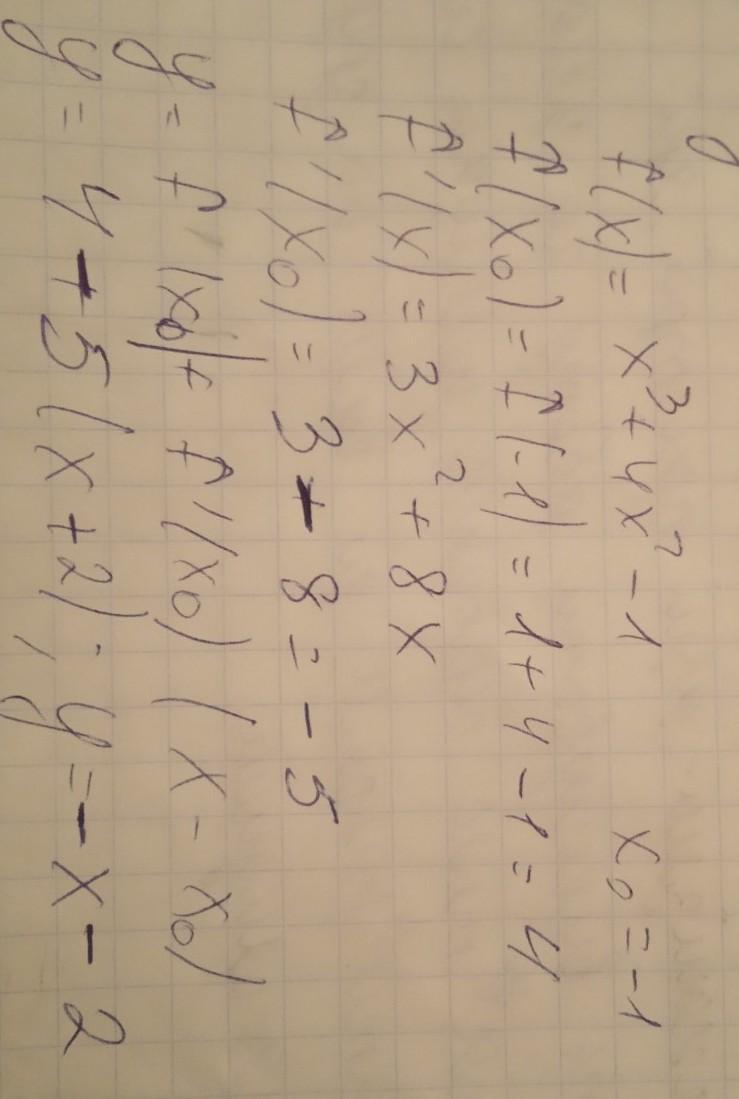 f(x) = x³ + 4x² - 1 x₀ = -1
f(x₀) = f(-1) = 1 + 4 - 1 = 4
f'(x) = 3x² + 8x
f'(x₀) = 3 + 8 = - 5
y = f'(x₀) + f'(x₀) (x - x₀)
y = 4 + 5(x + 2); y = -x - 2